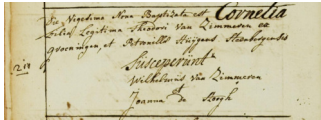 Die Vigesima Nona Baptizata est Cornelia
Filia Legitima Theodori Van Zimmeren ex
groeningen, et Petronilla Huijgens Steenbergensis
Susceperünt
Wilhelmus van Zimmeren
et
Joanna de Hoogh